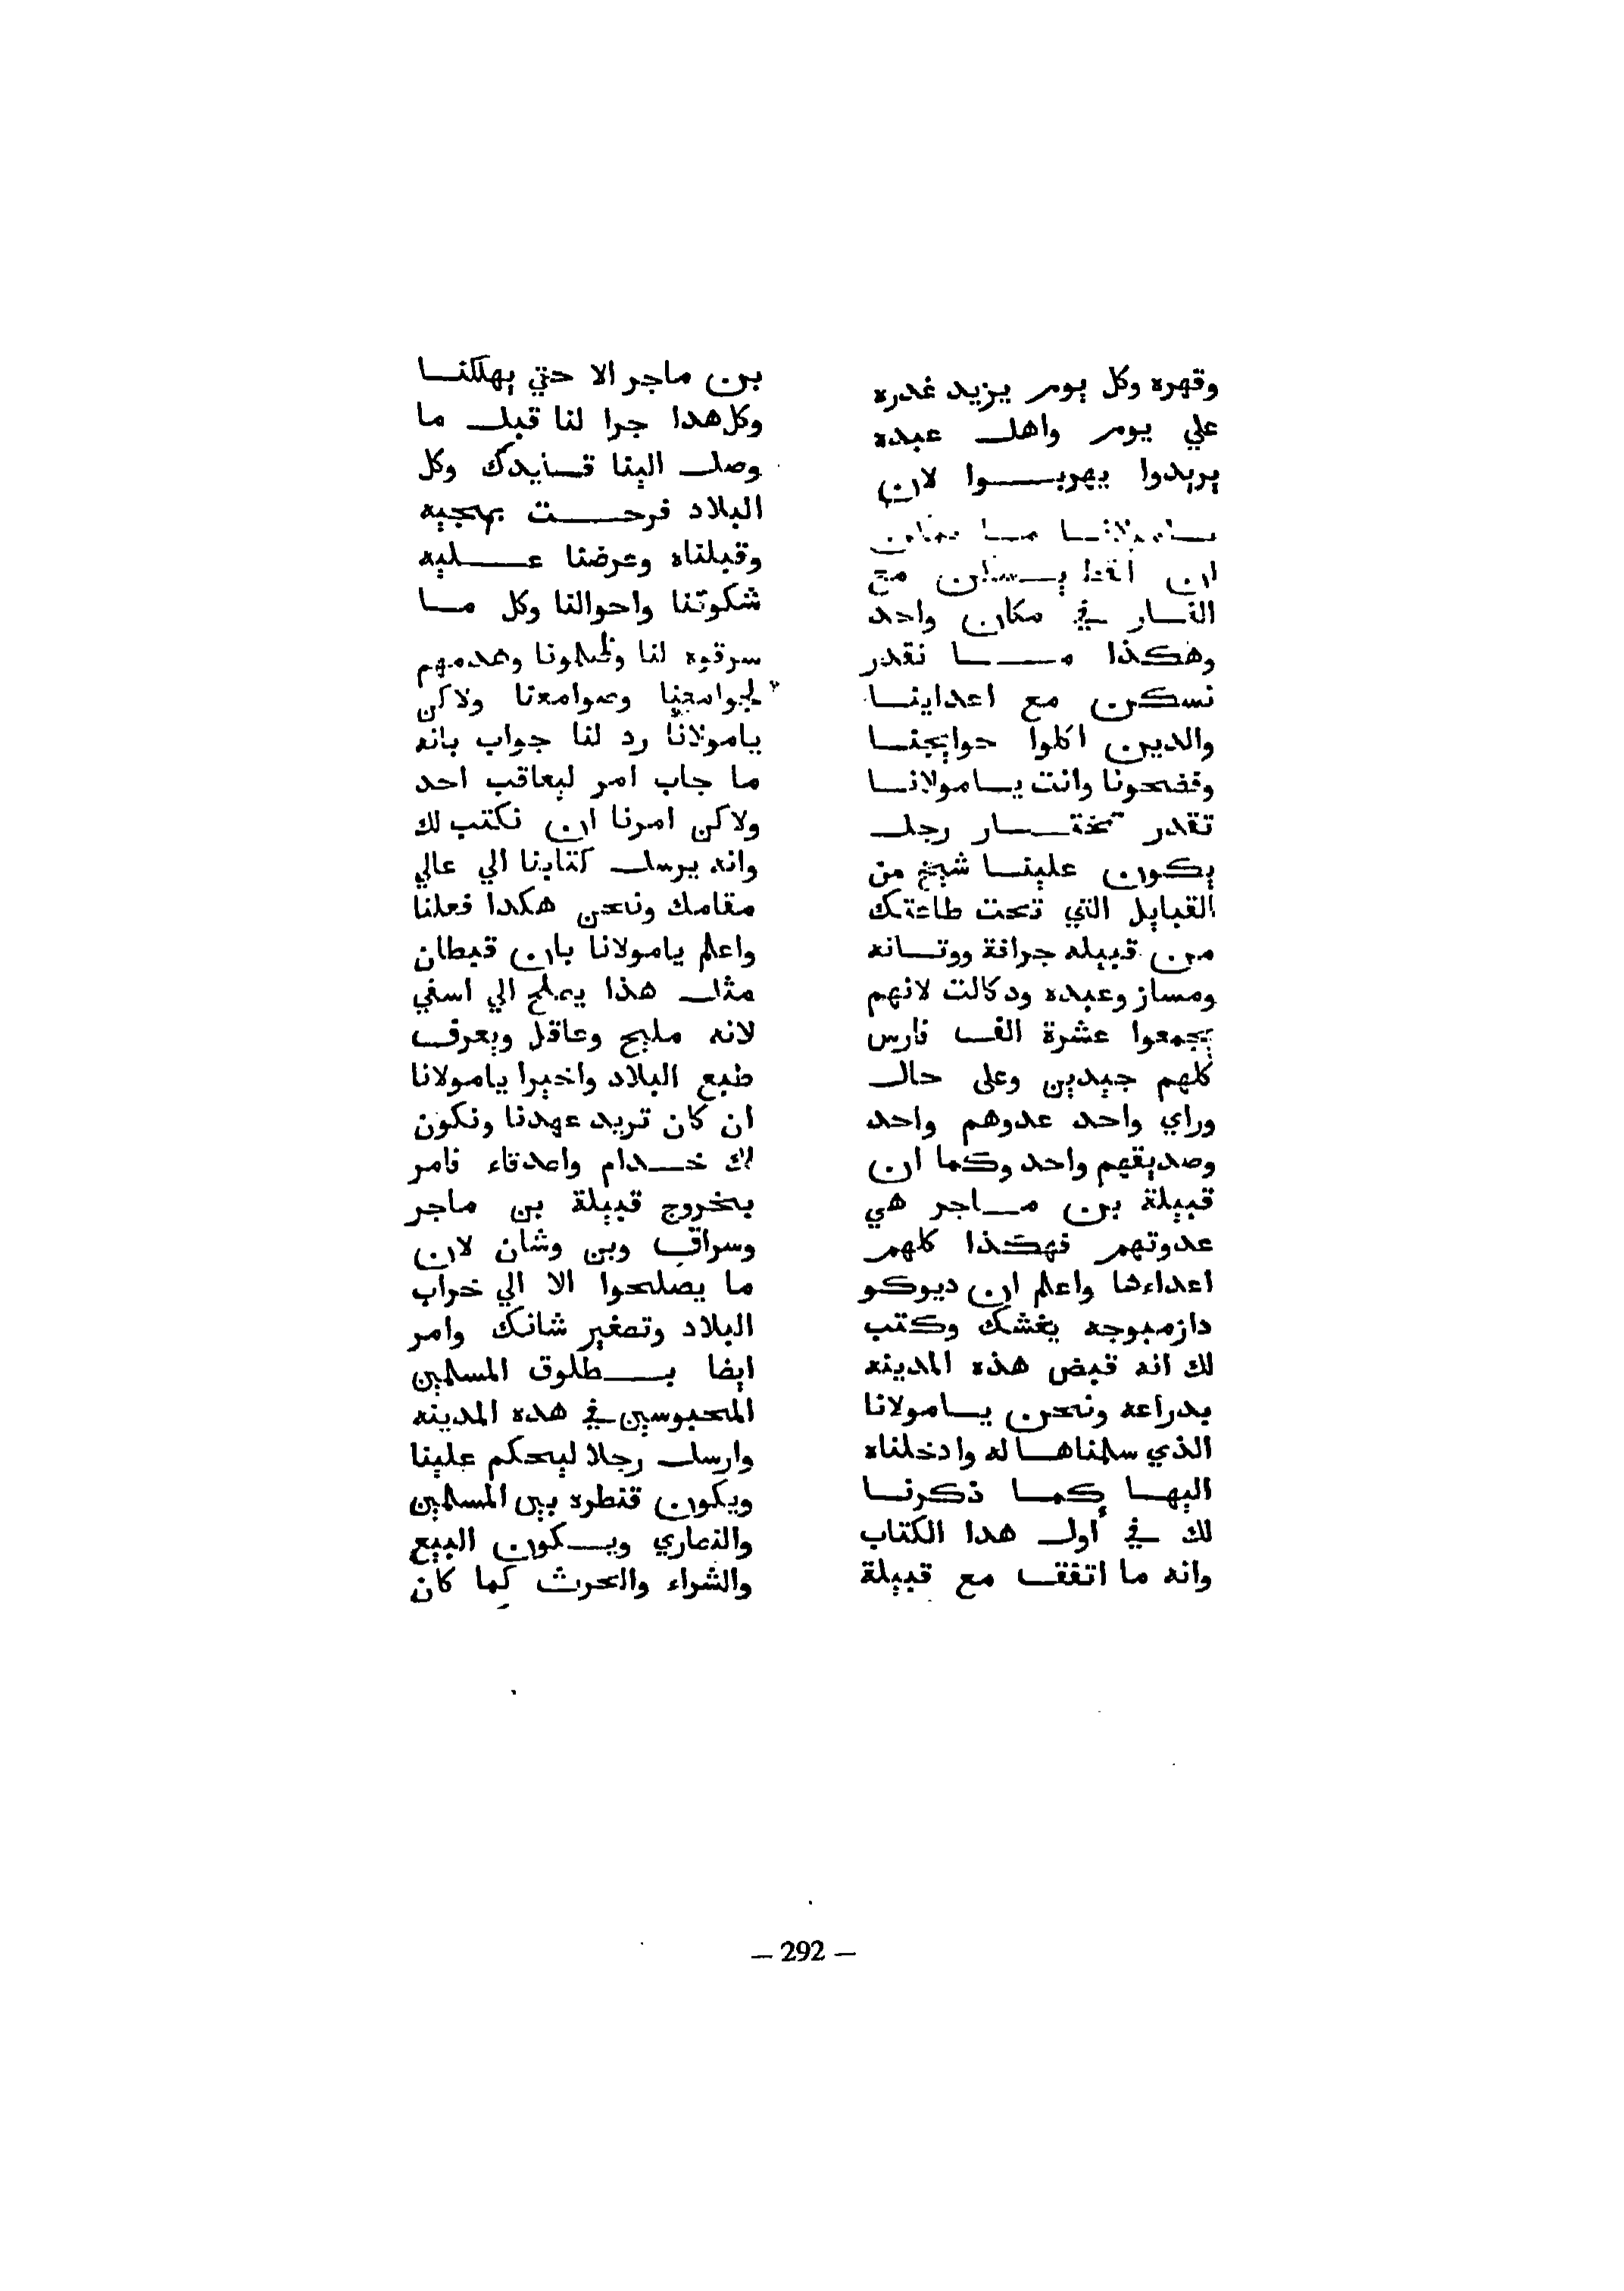 وقهره وكل يوم يزيد غدره
علي يوم واهل عبده
يريدوا يهربوا لان
يا مولانا ما
ان مع
النار في مكان واحد
وهكذا ما نقدر
نسكن مع اعداينا
والدين اكلوا حوايجنا
وفضحونا وانت يا مولانا
تقدر تختار رجل
يكون علينا شيخ من
القبايل التي تحت طاعتك
من قبيله جرانة ووتانه
ومساز وعبده ودكالت لانهم
يجمعوا عشرة الف فارس
كلهم جيدين وعلى حال
وراي واحد عدوهم واحد
وصديقهم واحد وكما ان
قبيلة بن ماجر هي
عدوتهم فهكذا كلهم
اعداءها واعلم ان ديوكو
دازمبوجه يغشك وكتب
لك انه قبض هذه المدينه
بدراعه ونحن يا مولانا
الذي سلمناها له وادخلناه
اليها كما ذكرنا
لك في أول هدا الكتاب
وانه ما اتفق مع قبيلة
بن ماجر الا حتي يهلكنا
وكل هدا جرا لنا قبل ما
وصل الينا قايدك وكل
البلاد فرحت بمجيه
وقبلناه وعرضنا عليه
شكوتنا واحوالنا وكل ما
سرقوه لنا وظلمونا وهدمهم
لجوامعنا وصوامعنا ولاكن
يامولانا رد لنا جواب بانه
ما جاب امر ليعاقب احد
ولاكن امرنا ان نكتب لك
وانه يرسل كتابنا الي عالي
مقامك ونحن هكدا فعلنا
واعلم يامولانا بان قبطان
مثل هذا يصلح الي اسفي
لانه مليح وعاقل ويعرف
طبع البلاد واخيرا يامولانا
ان كان تريد عهدنا ونكون
لك خدام واصدقاء فامر
بخروج قبيلة بن ماجر
وسراق وبن وشان لان
ما يصلحوا الا الي خراب
البلاد وتصغير شانك وامر
ايضا بطلوق المسلمين
المحبوسين في هده المدينه
وارسل رجلا ليحكم علينا
ويكون قنطره بين المسلمين
والنصاري ويكون البيع
والشراء والحرث كما كان
— 292 —